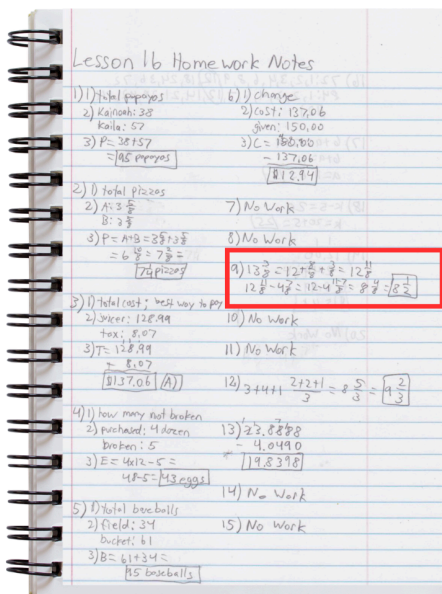 Lesson 16 Homework Notes
1) 1) total papayas
2) Kainoah: 38
Kaila: 57
3) P = 38+57
= 95 papayas
2) 1) total pizzas
2) A: 3 5/8
B: 3 5/8
3) P = A+B = 3 5/8 + 3 5/8
= 6 10/8 = 7 2/8 =
7 1/4 pizzas
3) 1) total cost; best way to pay
2) Juicer: 128.99
tax: 8.07
3) T = 128.99
+ 8.07
$137.06 (A)
4) 1) how many not broken
2) purchased: 4 dozen
broken: 5
3) E = 4x12-5 =
48-5= 43 eggs
5) 1) total baseballs
2) field: 34
bucket: 61
3) B = 61+34 =
95 baseballs
6) 1) change
2) cost: 137.06
given: 150.00
3) C = 150.00
- 137.06
$12.94
7) No Work
8) No Work
9) 13 3/8 = 12 + 8/8 + 3/8 = 12 11/8
12 11/8 - 4 7/8 = 12-4 11-7/8 = 8 4/8 = 8 1/2
10) No Work
11) No Work
12) 3+4+1 2+2+1/3 = 8 5/3 = 9 2/3
13) 23.8888
- 4.0490
19.8398
14) No Work
15) No Work